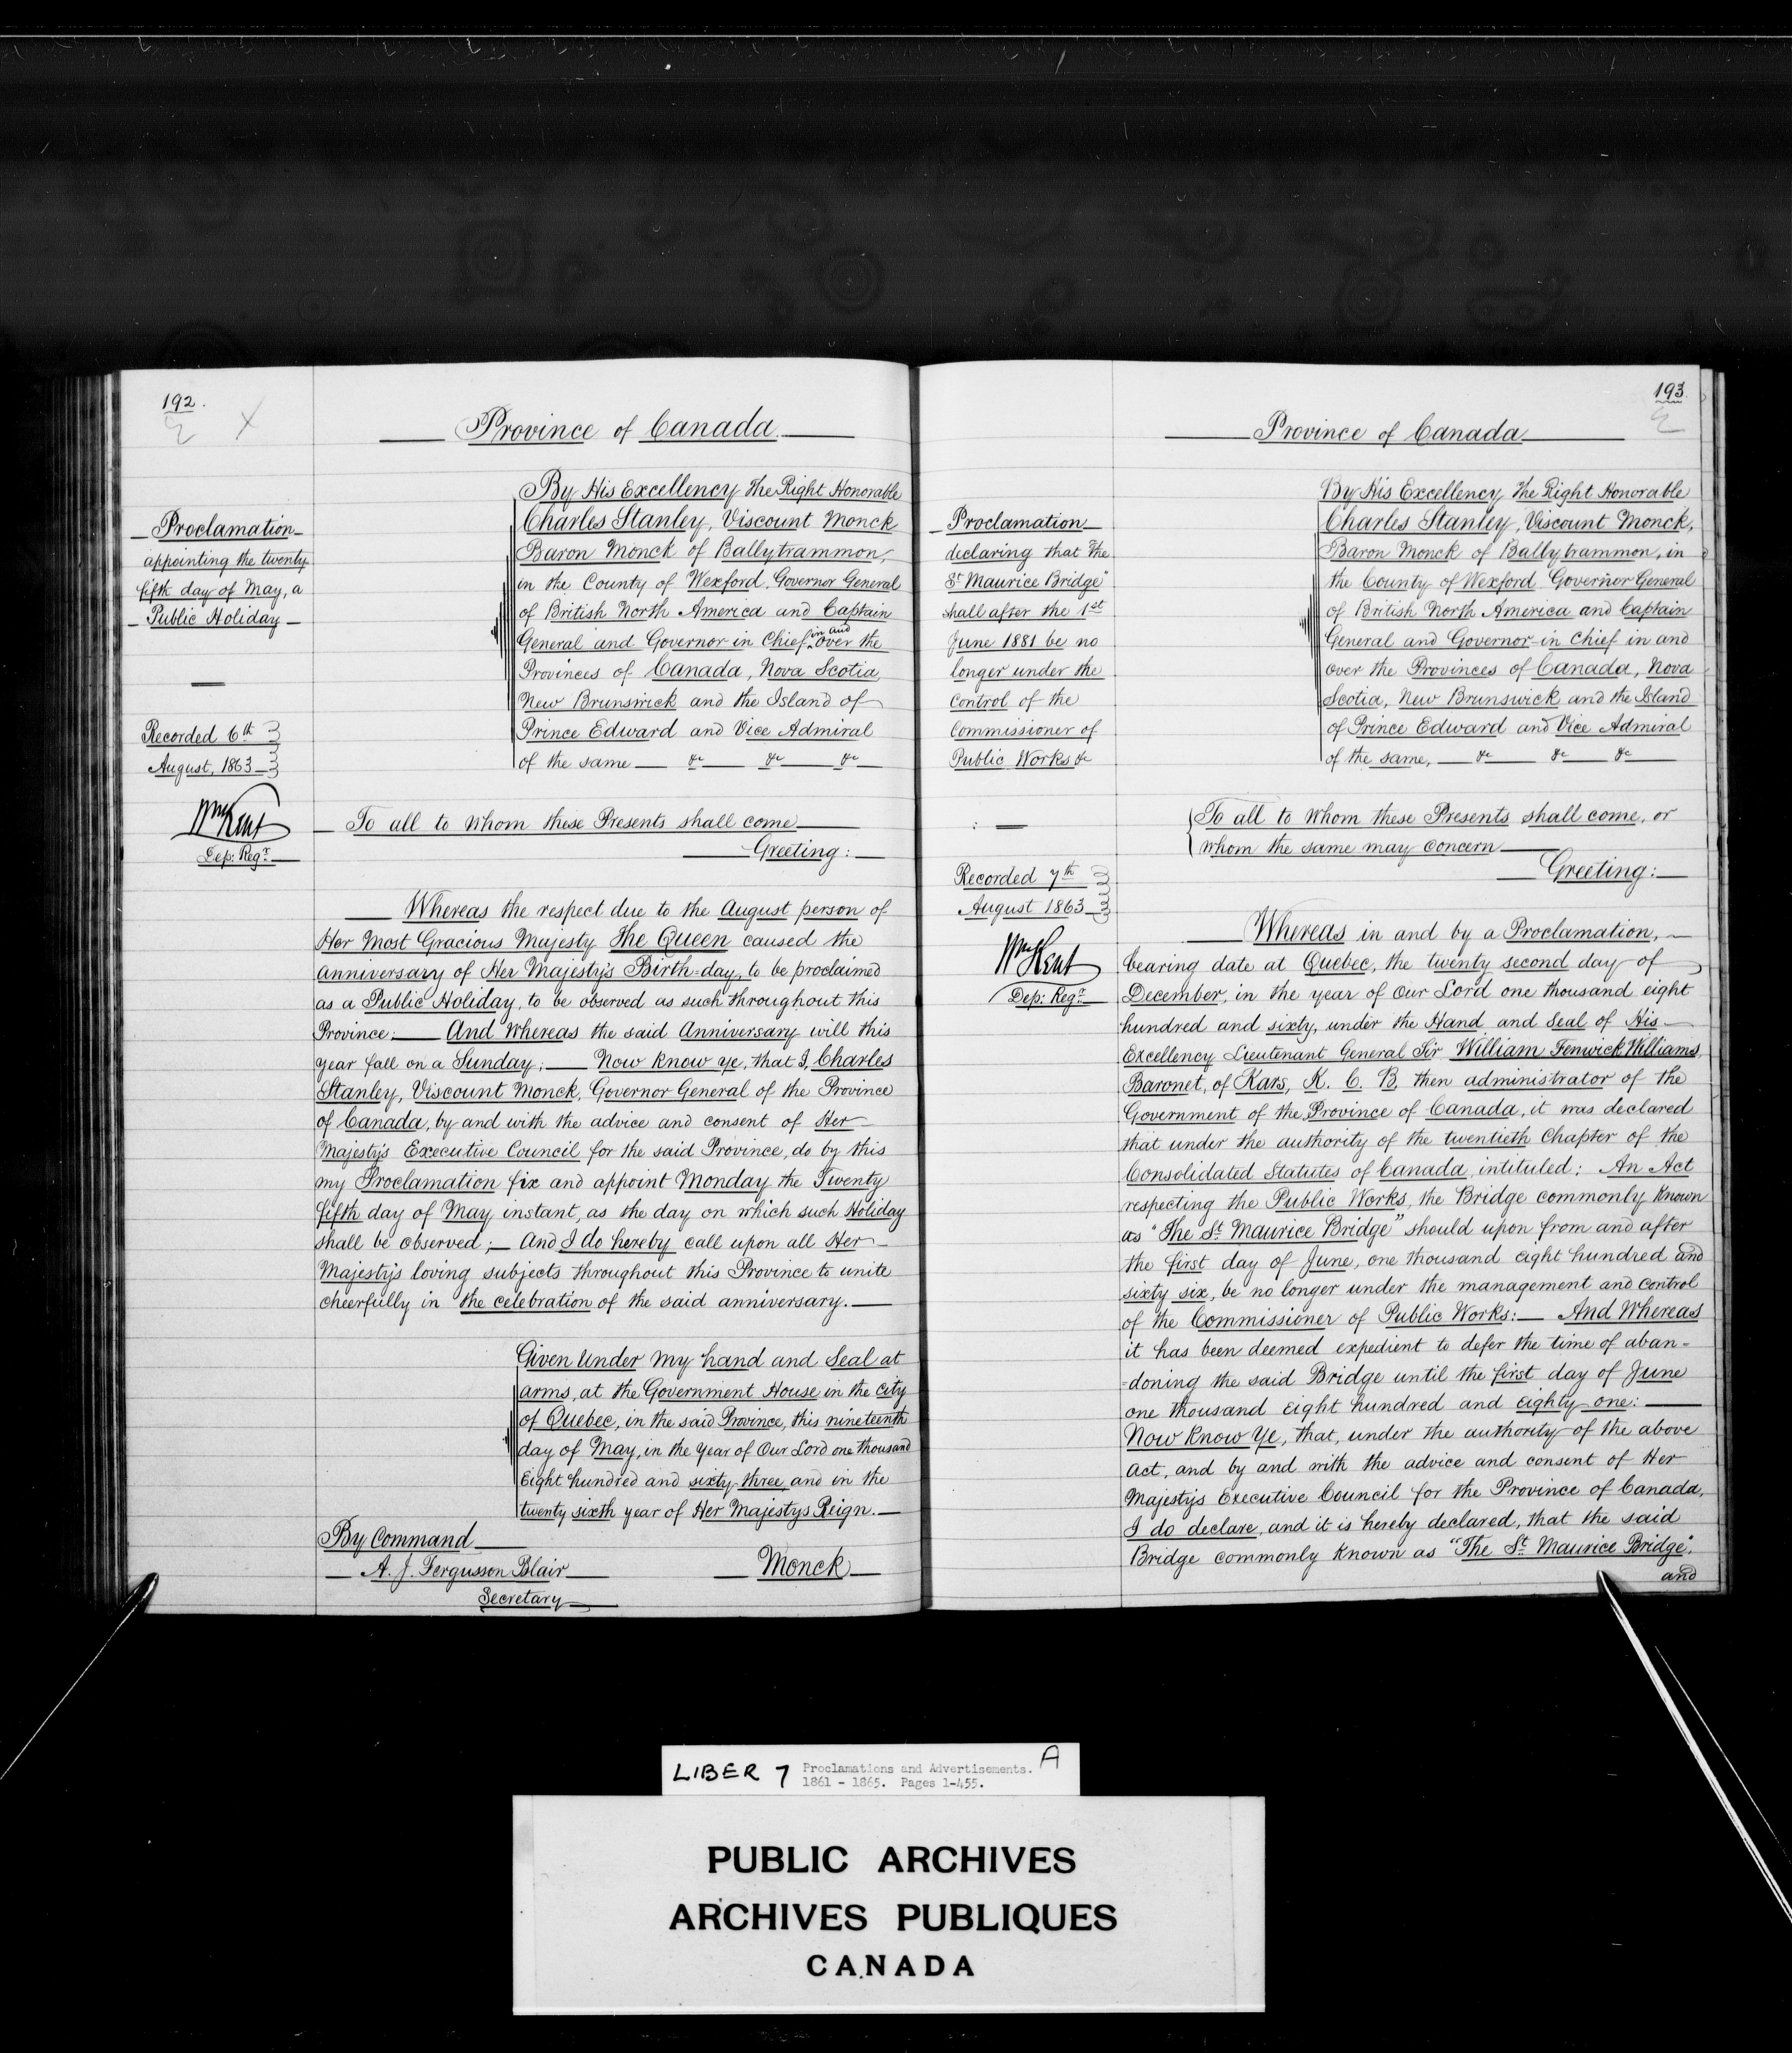 192.
Province of Canada
Proclamation
appointing the twenty
fifth day of May, a
Public Holiday
Recorded 6th
August, 1863
Wm Kent
Dep: Regr
By His Excellency The Right Honorable
Charles Stanley, Viscount Monck
Baron Monck of Ballytrammon,
in the County of Wexford. Governor General
of British North America and Captain
General and Governor in Chief in and over the
Provinces of Canada, Nova Scotia,
New Brunswick and the Island of
Prince Edward and Vice Admiral
of the same &c &c &c
To all to whom these Presents shall come
Greeting:
Whereas the respect due to the August person of
Her Most Gracious Majesty The Queen caused the
anniversary of Her Majesty's Birth=day, to be proclaimed
as a Public Holiday, to be observed as such throughout this
Province: And Whereas the said Anniversary will this
year fall on a Sunday; Now Know ye, that I, Charles
Stanley, Viscount Monck, Governor General of the Province
of Canada, by and with the advice and consent of Her
Majesty's Executive Council for the said Province, do by this
my Proclamation fix and appoint Monday the Twenty
fifth day of May instant, as the day on which such Holiday
shall be observed; And I do hereby call upon all Her
Majesty's loving subjects throughout this Province to unite
cheerfully in the celebration of the said anniversary.
Given under my hand and Seal at
arms, at the Government House in the city
of Quebec, in the said Province, this nineteenth
day of May, in the year of Our Lord one thousand
Eight hundred and sixty three, and in the
twenty sixth year of Her Majestys Reign.
By Command
A. J. Fergusson Blair
Monck
Secretary
193
Province of Canada
Proclamation
declaring that "The
St Maurice Bridge"
shall after the 1st
June 1881 be no
longer under the
control of the
Commissioner of
Public Works &c
Recorded 7th
August 1863
Wm Kent
Dep: Regr
By His Excellency The Right Honorable
Charles Stanley, Viscount Monck,
Baron Monck of Ballytrammon, in
the County of Wexford Governor General
of British North America and Captain
General and Governor in Chief in and
over the Provinces of Canada, Nova
Scotia, New Brunswick and the Island
of Prince Edward and Vice Admiral
of the same, &c &c &c
To all to whom these Presents shall come, or
whom the same may concern
Greeting:
Whereas in and by a Proclamation,
bearing date at Quebec, the twenty second day of
December, in the year of Our Lord one thousand eight
hundred and sixty, under the Hand and Seal of His
Excellency Lieutenant General Sir William Fenwick Williams,
Baronet, of Kars, K. C. B. then administrator of the
Government of the Province of Canada, it was declared
that under the authority of the twentieth Chapter of the
Consolidated Statutes of Canada, intituled; An Act
respecting the Public Works, the Bridge commonly known
as "The St Maurice Bridge" should upon from and after
the first day of June, one thousand eight hundred and
sixty six, be no longer under the management and control
of the Commissioner of Public Works: And Whereas
it has been deemed expedient to defer the time of aban=
=doning the said Bridge until the first day of June
one thousand eight hundred and eighty one:
Now Know Ye, that, under the authority of the above
Act, and by and with the advice and consent of Her
Majesty's Executive Council for the Province of Canada,
I do declare, and it is hereby declared, that the said
Bridge commonly known as "The St Maurice Bridge",
and
LIBER 7 Proclamations and Advertisements. A
1861 - 1865. Pages 1-455.
PUBLIC ARCHIVES
ARCHIVES PUBLIQUES
CANADA